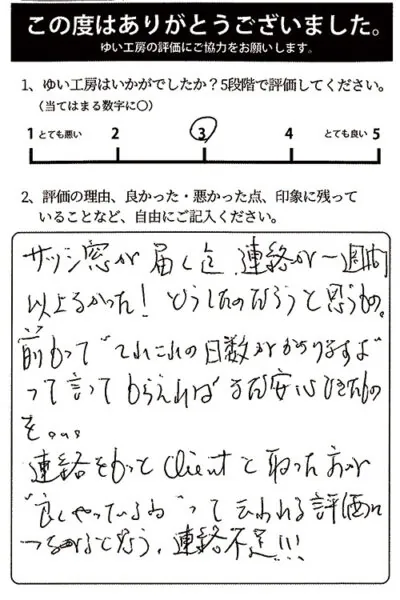 この度はありがとうございました。
ゆい工房の評価にご協力をお願いします。
1、ゆい工房はいかがでしたか?5段階で評価してください。
(当てはまる数字に○)
1 とても悪い 2 3 4 とても良い 5
2、評価の理由、良かった・悪かった点、印象に残って
いることなど、自由にご記入ください。
サッシ窓が届く迄、連絡が一週間
以上なかった！どうしたのだろうと思うもの。
前もって"これこれの日数がかかりますよ"
って言ってもらえれば まだ安心できたもの
を。。。
連絡をもっとClientと取った方が
"良くやっているね"って云われる評価に
つながると思う。連絡不足!!!